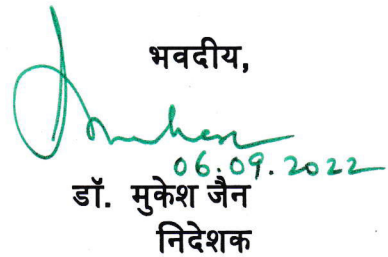 भवदीय,
06.09.2022
डॉ. मुकेश जैन
निदेशक